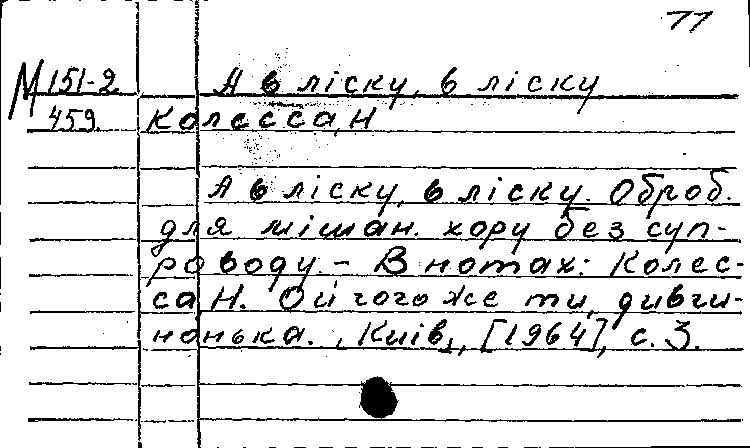 77
М 151-2 А в ліску, в ліску
459. Колесса, Н
А в ліску, в ліску. Оброб.
для мішан. хору без суп-
роводу. - В нотах: Колес-
са Н. Ой чого же ти, дивчи-
нонька. Київ, [1964], с. 3.